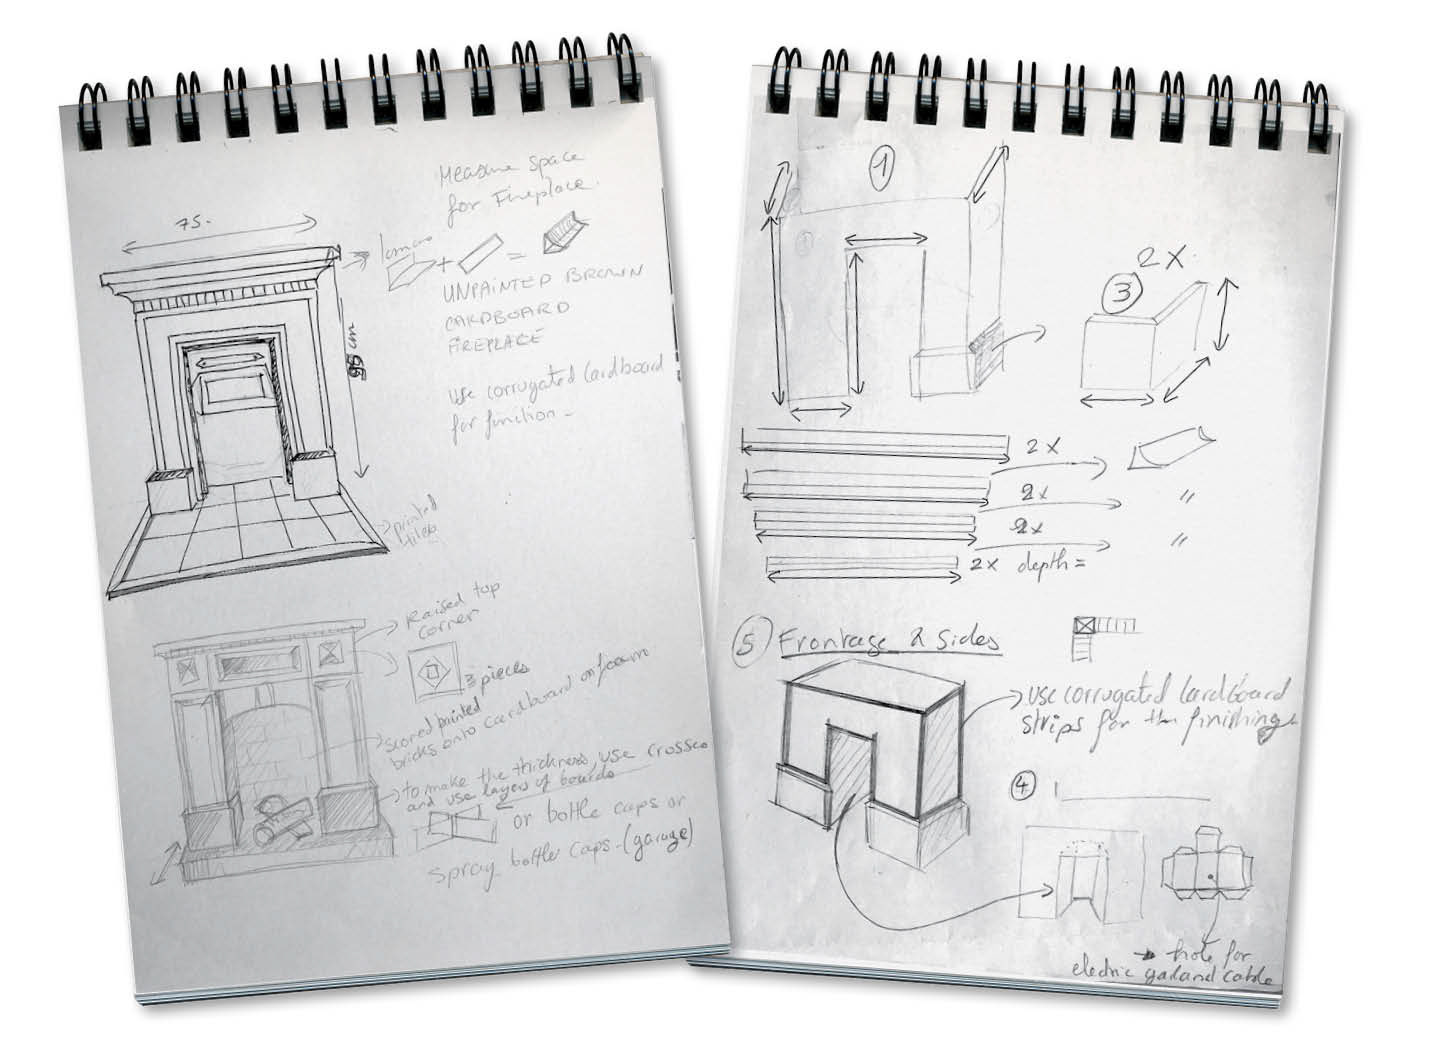 Measure space
for Fireplace.
75.
+
=
UNPAINTED BROWN
CARDBOARD
FIREPLACE
95 cm
use corrugated cardboard
for finition -
printed
tiles
Raised top
corner
3 pieces
scored painted
bricks onto cardboard or foam
to make the thickness, use
and use layers of boards
or bottle caps or
spray bottle caps - (garage)
1
2 X
3
2 X
2 X
"
2 X
"
2 X depth =
5 Frontage & Sides
use corrugated cardboard
strips for the finishing
4
hole for
electric garland cable